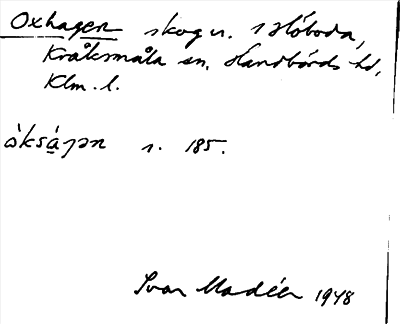 Oxhagen skog u. Slöboda,
Kråksmåla sn. Handbörds hd,
Klm. l.
s. 185.
Ivar Modéer 1948